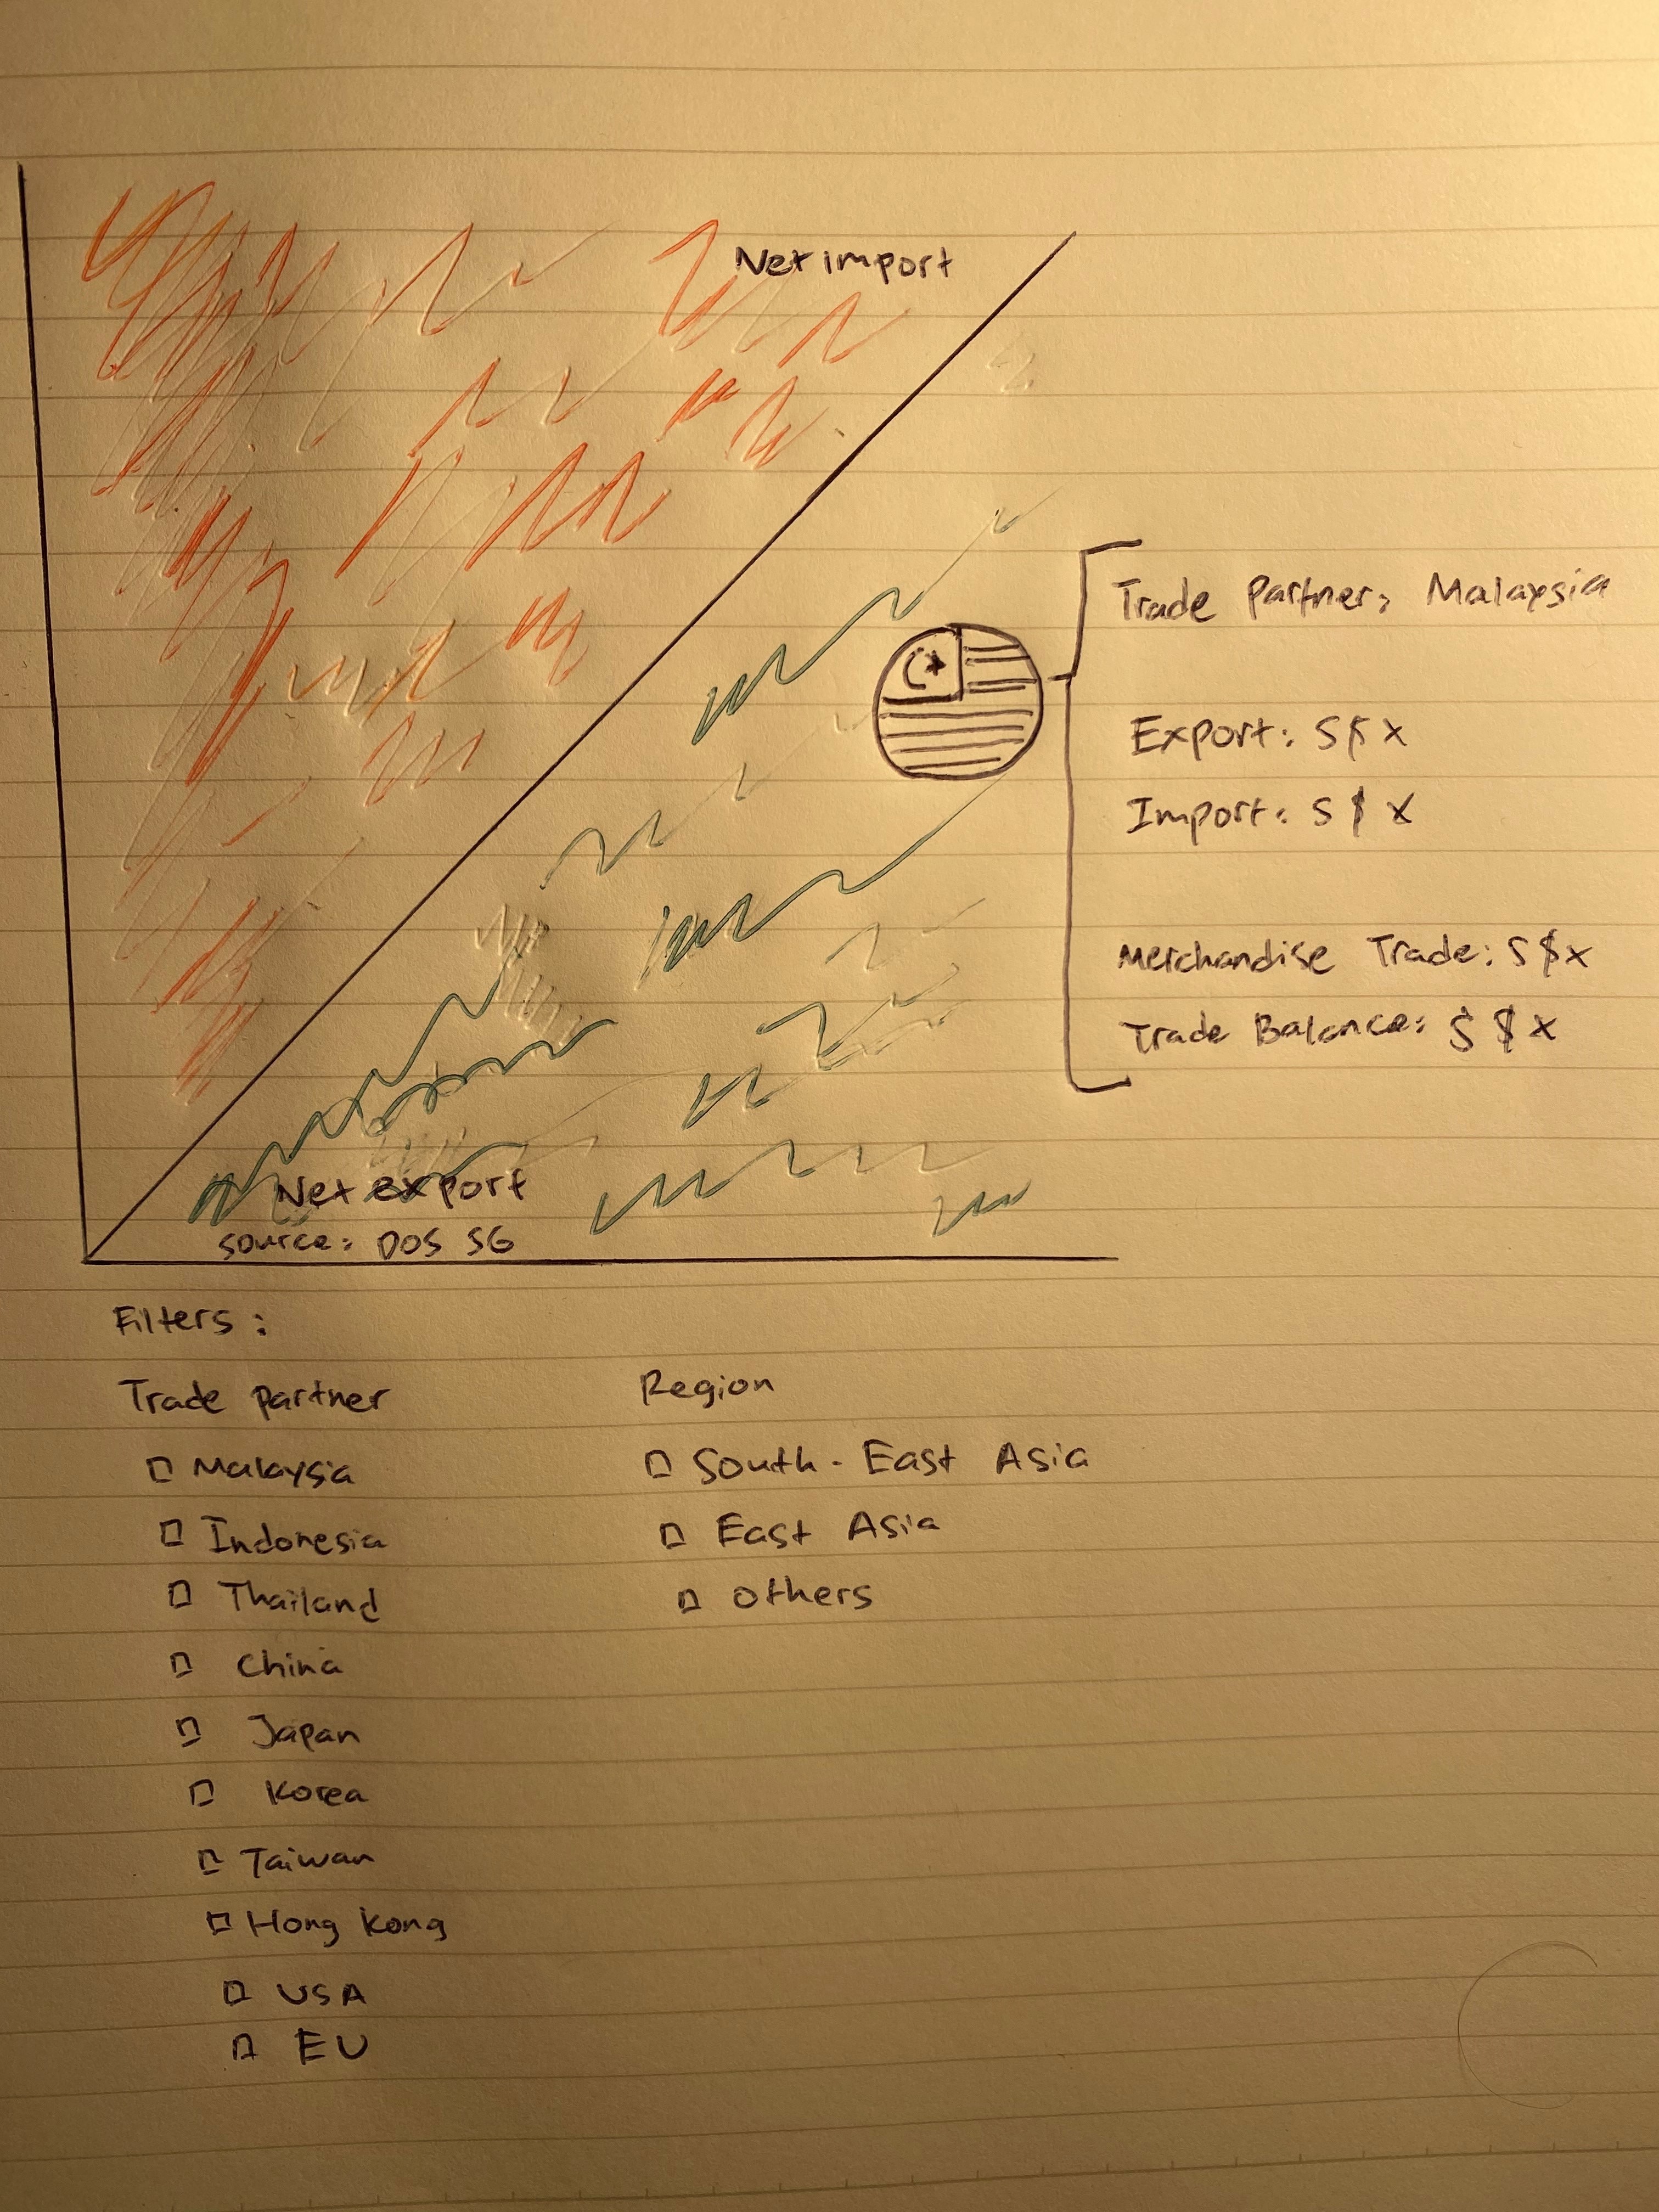 Net import
Trade Partner: Malaysia
Export: S$ x
Import: S $ x
Merchandise Trade: S$x
Trade Balance: S $ x
Net export
source: DOS SG
Filters:
Trade partner
Malaysia
Indonesia
Thailand
China
Japan
Korea
Taiwan
Hong Kong
USA
EU
Region
South-East Asia
East Asia
Others